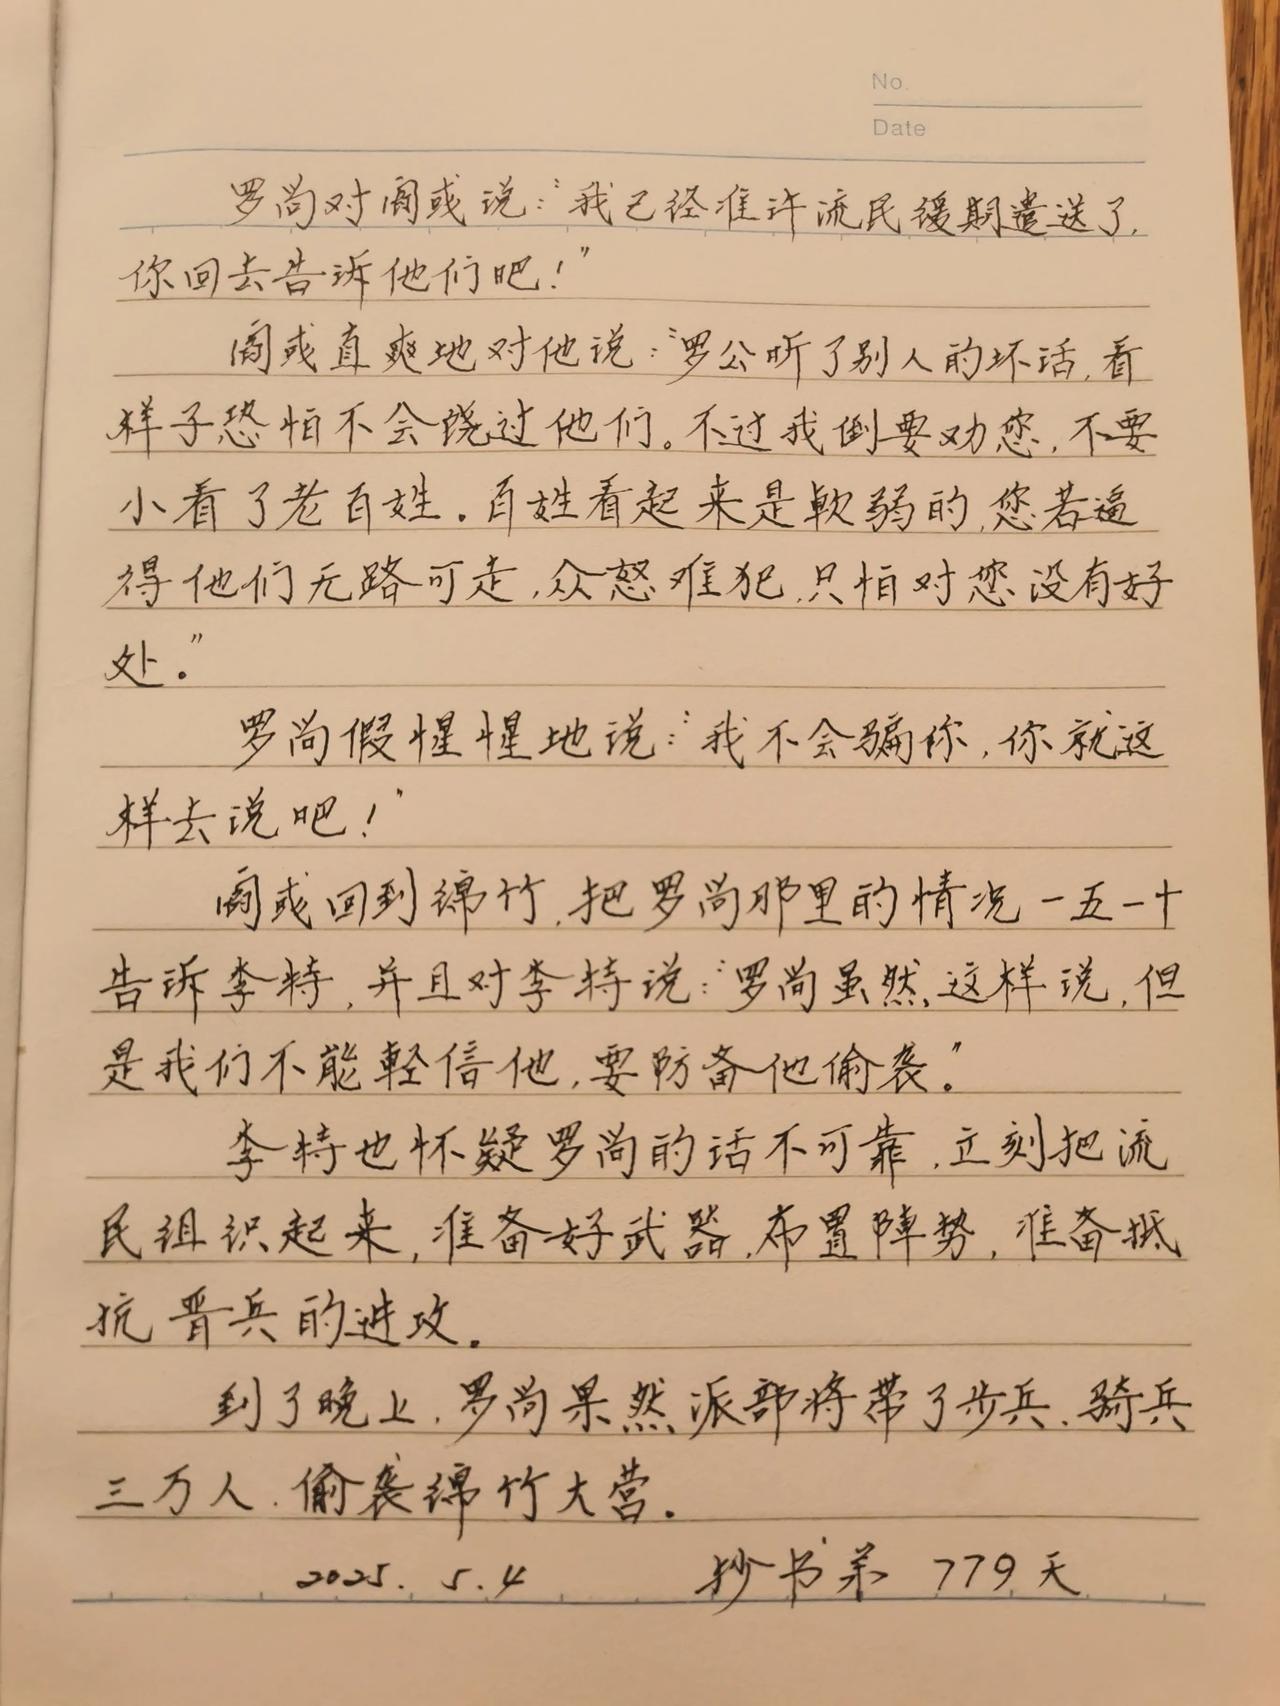 No.
Date
罗尚对阎彧说：“我已经准许流民缓期遣送了，
你回去告诉他们吧！”
阎彧直爽地对他说：“罗公听了别人的坏话，看
样子恐怕不会饶过他们。不过我倒要劝您，不要
小看了老百姓。百姓看起来是軟弱的，您若逼
得他们无路可走，众怒难犯，只怕对您没有好
处。”
罗尚假惺惺地说：“我不会骗你，你就这
样去说吧！”
阎彧回到绵竹，把罗尚那里的情况一五一十
告诉李特，并且对李特说：“罗尚虽然这样说，但
是我们不能輕信他，要防备他偷袭。”
李特也怀疑罗尚的话不可靠，立刻把流
民组织起来，准备好武器，布置陣势，准备抵
抗晋兵的进攻。
到了晚上，罗尚果然派部将带了步兵、骑兵
三万人，偷袭绵竹大营。
2025.5.4 抄书第779天